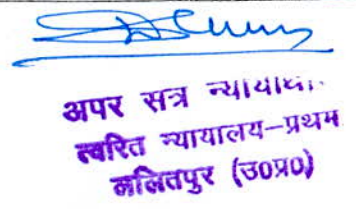 अपर सत्र
त्वरित न्यायालय–प्रथम
ललितपुर (उ०प्र०)